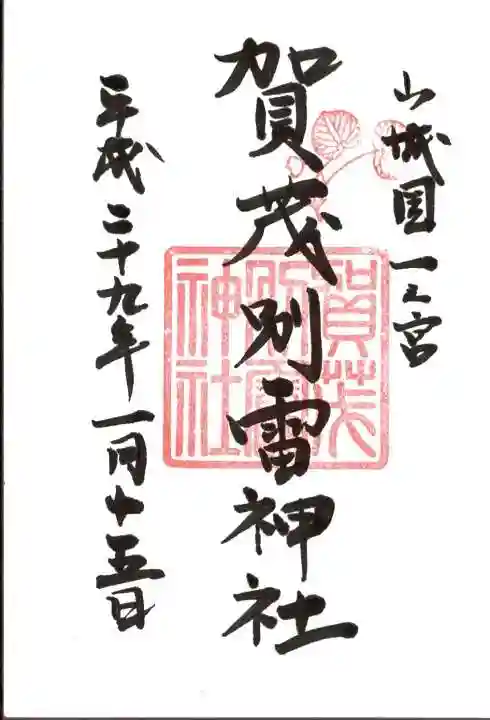 山城国一之宮
賀茂別雷神社
平成二十九年一月十五日
賀茂
別雷
神社